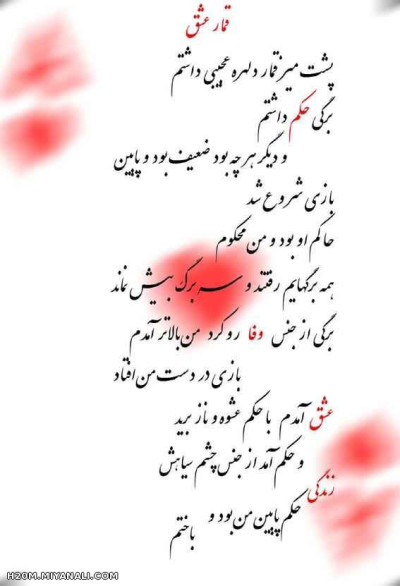 قمار عشق
پشت میز قمار دلهره عجیبی داشتم
برگی حکم داشتم
و دیگر هر چه بود ضعیف بود و پایین
بازی شروع شد
حاکم او بود و من محکوم
همه برگهایم رفتند و سه برگ بیش نماند
برگی از جنس وفا رو کرد من بالاتر آمدم
بازی در دست من افتاد
عشق آمدم با حکم عشوه و ناز برید
و حکم آمد از جنس چشم سیاهش
زندگی حکم پایین من بود و
باختم
H20M.MIYANALI.COM